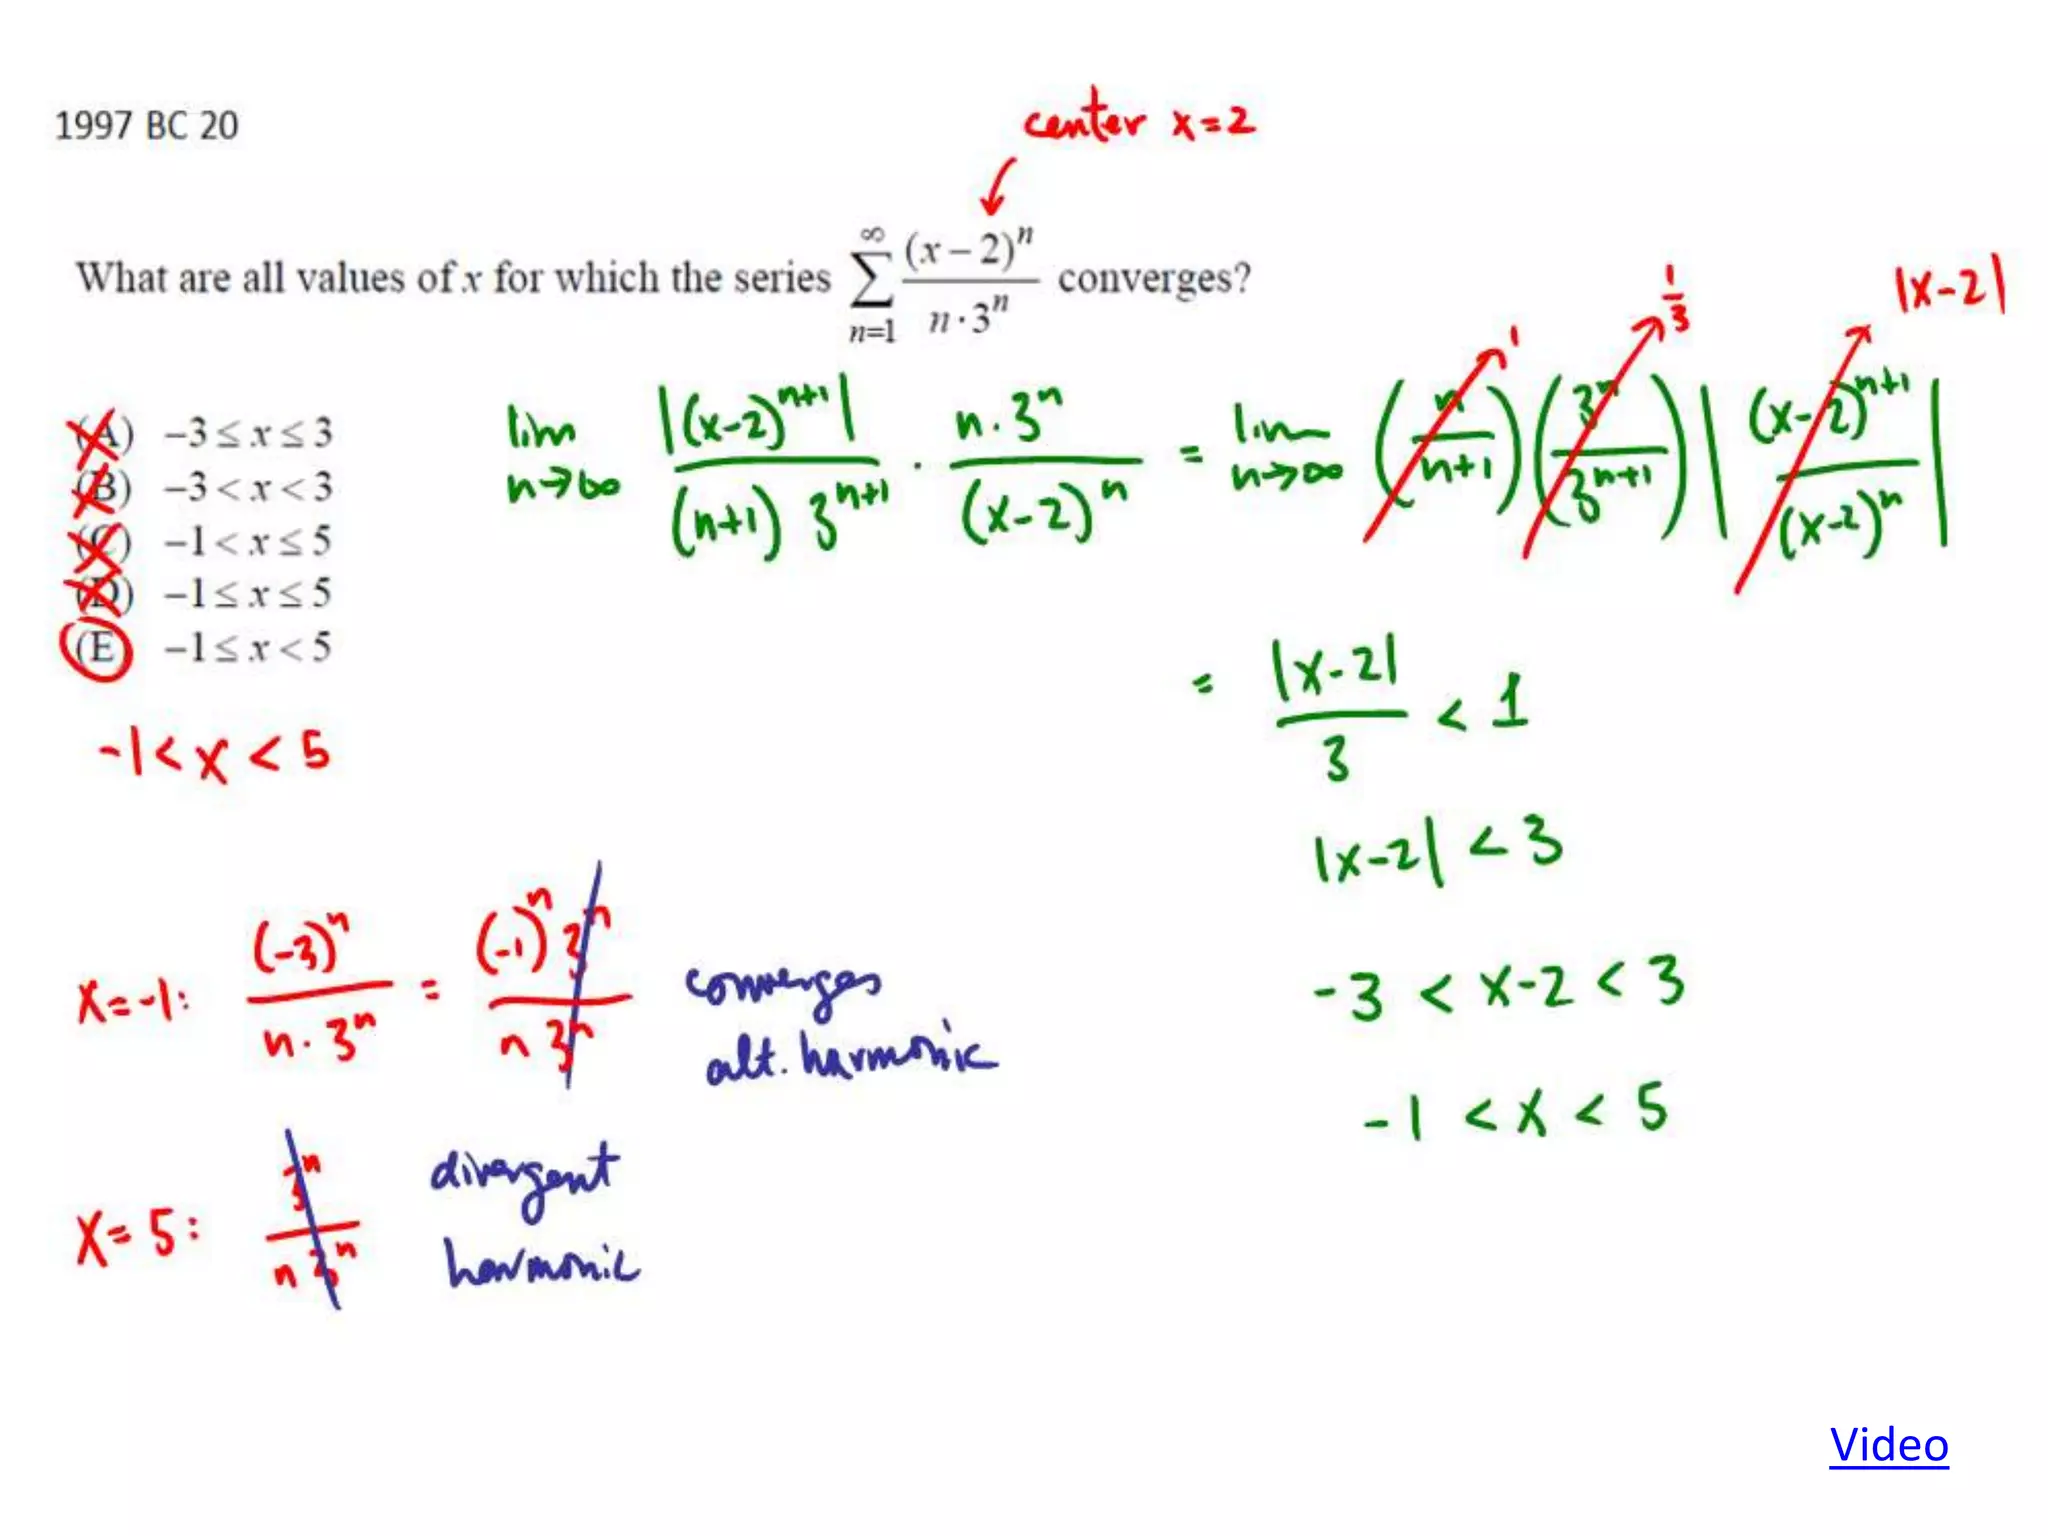 1997 BC 20
center x=2
What are all values of x for which the series ∑_{n=1}^{∞} (x – 2)^n / (n · 3^n) converges?
1 1/3 |x-2|
lim_{n→∞} |(x-2)^{n+1}| / ((n+1) 3^{n+1}) · (n·3^n) / (x-2)^n = lim_{n→∞} (n/(n+1)) (3^n/3^{n+1}) |(x-2)^{n+1}/(x-2)^n|
(A) –3 ≤ x ≤ 3
(B) –3 < x < 3
(C) –1 < x ≤ 5
(D) –1 ≤ x ≤ 5
(E) –1 ≤ x < 5
-1 < x < 5
= |x-2| / 3 < 1
|x-2| < 3
-3 < x-2 < 3
-1 < x < 5
x=-1: (-3)^n / (n·3^n) = (-1)^n 3^n / (n 3^n) converges
alt. harmonic
x=5: 3^n / (n 3^n) divergent
harmonic
Video